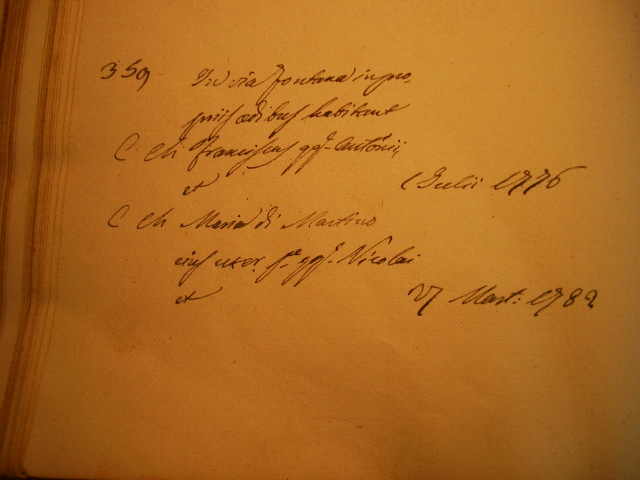 359 In via Fontana in pro-
priis ædibus habitant
C. Ch Franciscus qq.m Antonii,
et
Julii 1776
C Ch Maria di Martino
eius uxor f.a qq.m Nicolai
et
27 Mart: 1782